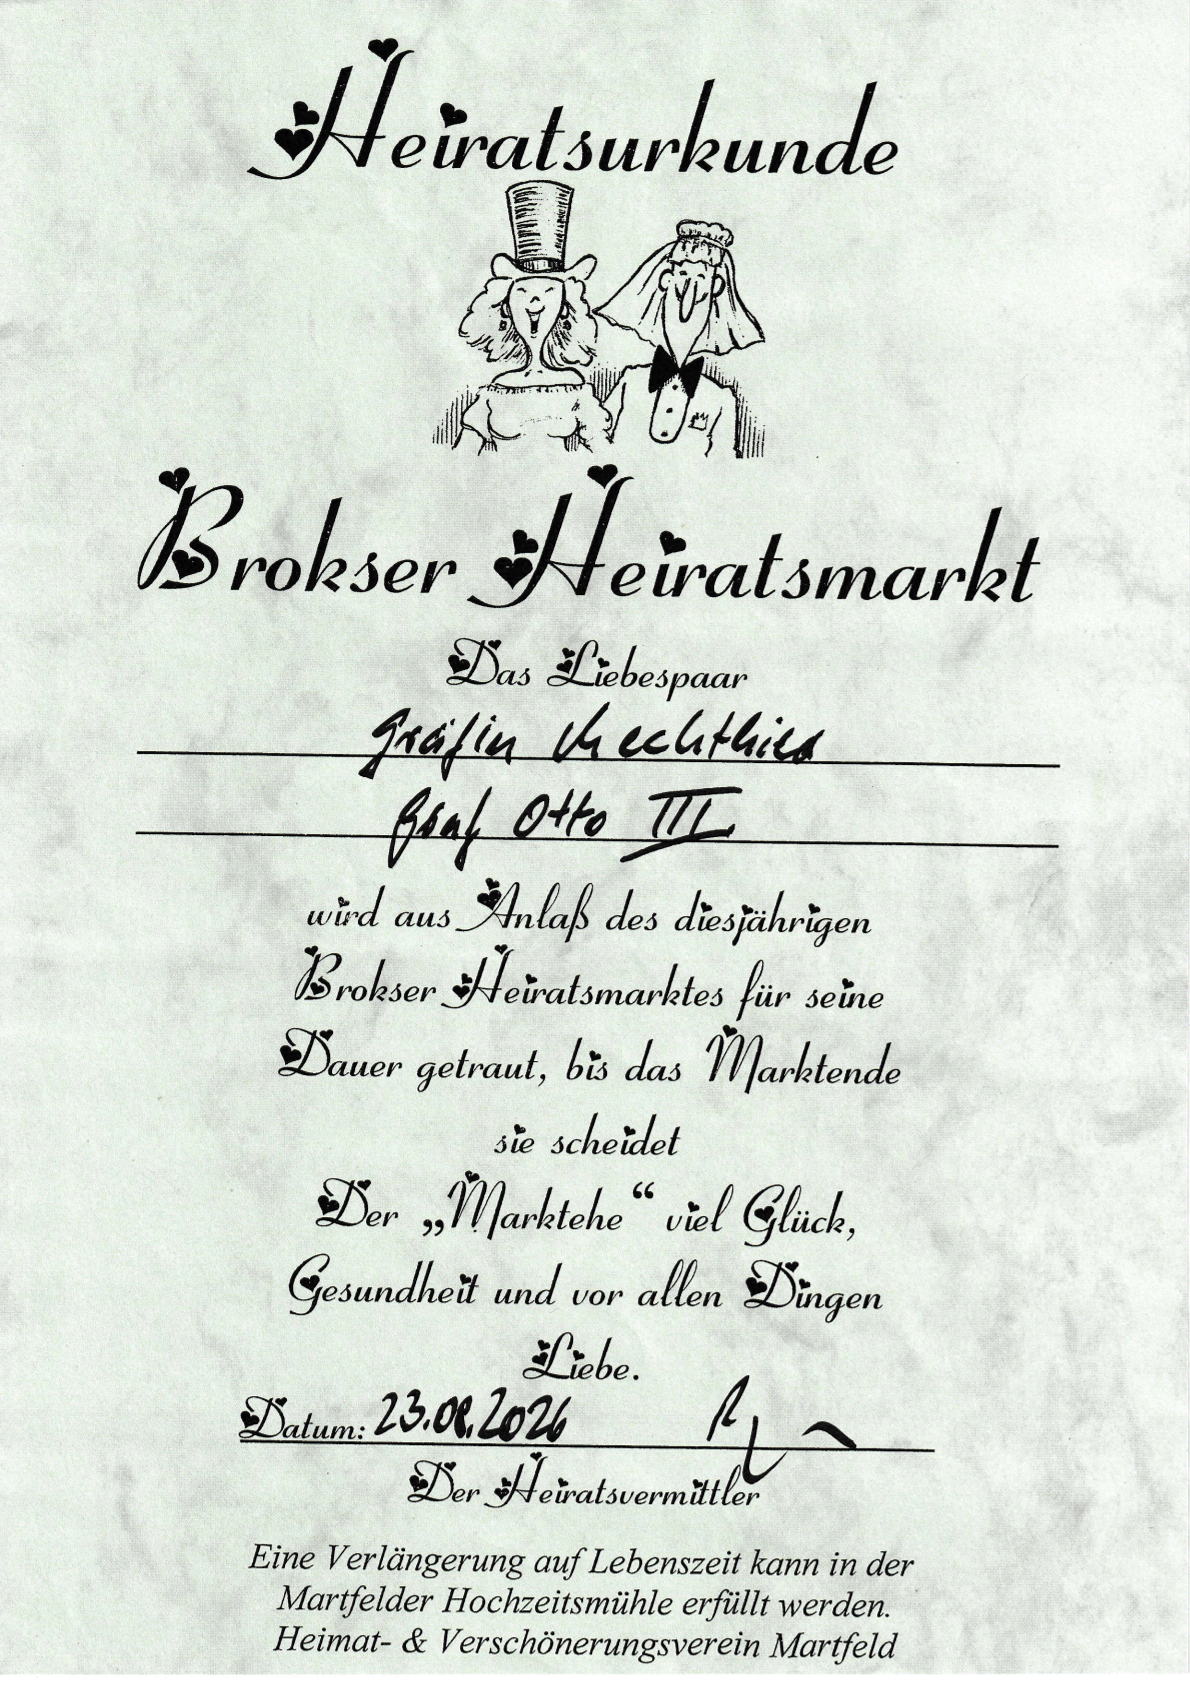 Heiratsurkunde
Brokser Heiratsmarkt
Das Liebespaar
Gräfin Mechthild
Graf Otto III.
wird aus Anlaß des diesjährigen
Brokser Heiratsmarktes für seine
Dauer getraut, bis das Marktende
sie scheidet
Der „Marktehe“ viel Glück,
Gesundheit und vor allen Dingen
Liebe.
Datum: 23.08.2026
Der Heiratsvermittler
Eine Verlängerung auf Lebenszeit kann in der
Martfelder Hochzeitsmühle erfüllt werden.
Heimat- & Verschönerungsverein Martfeld